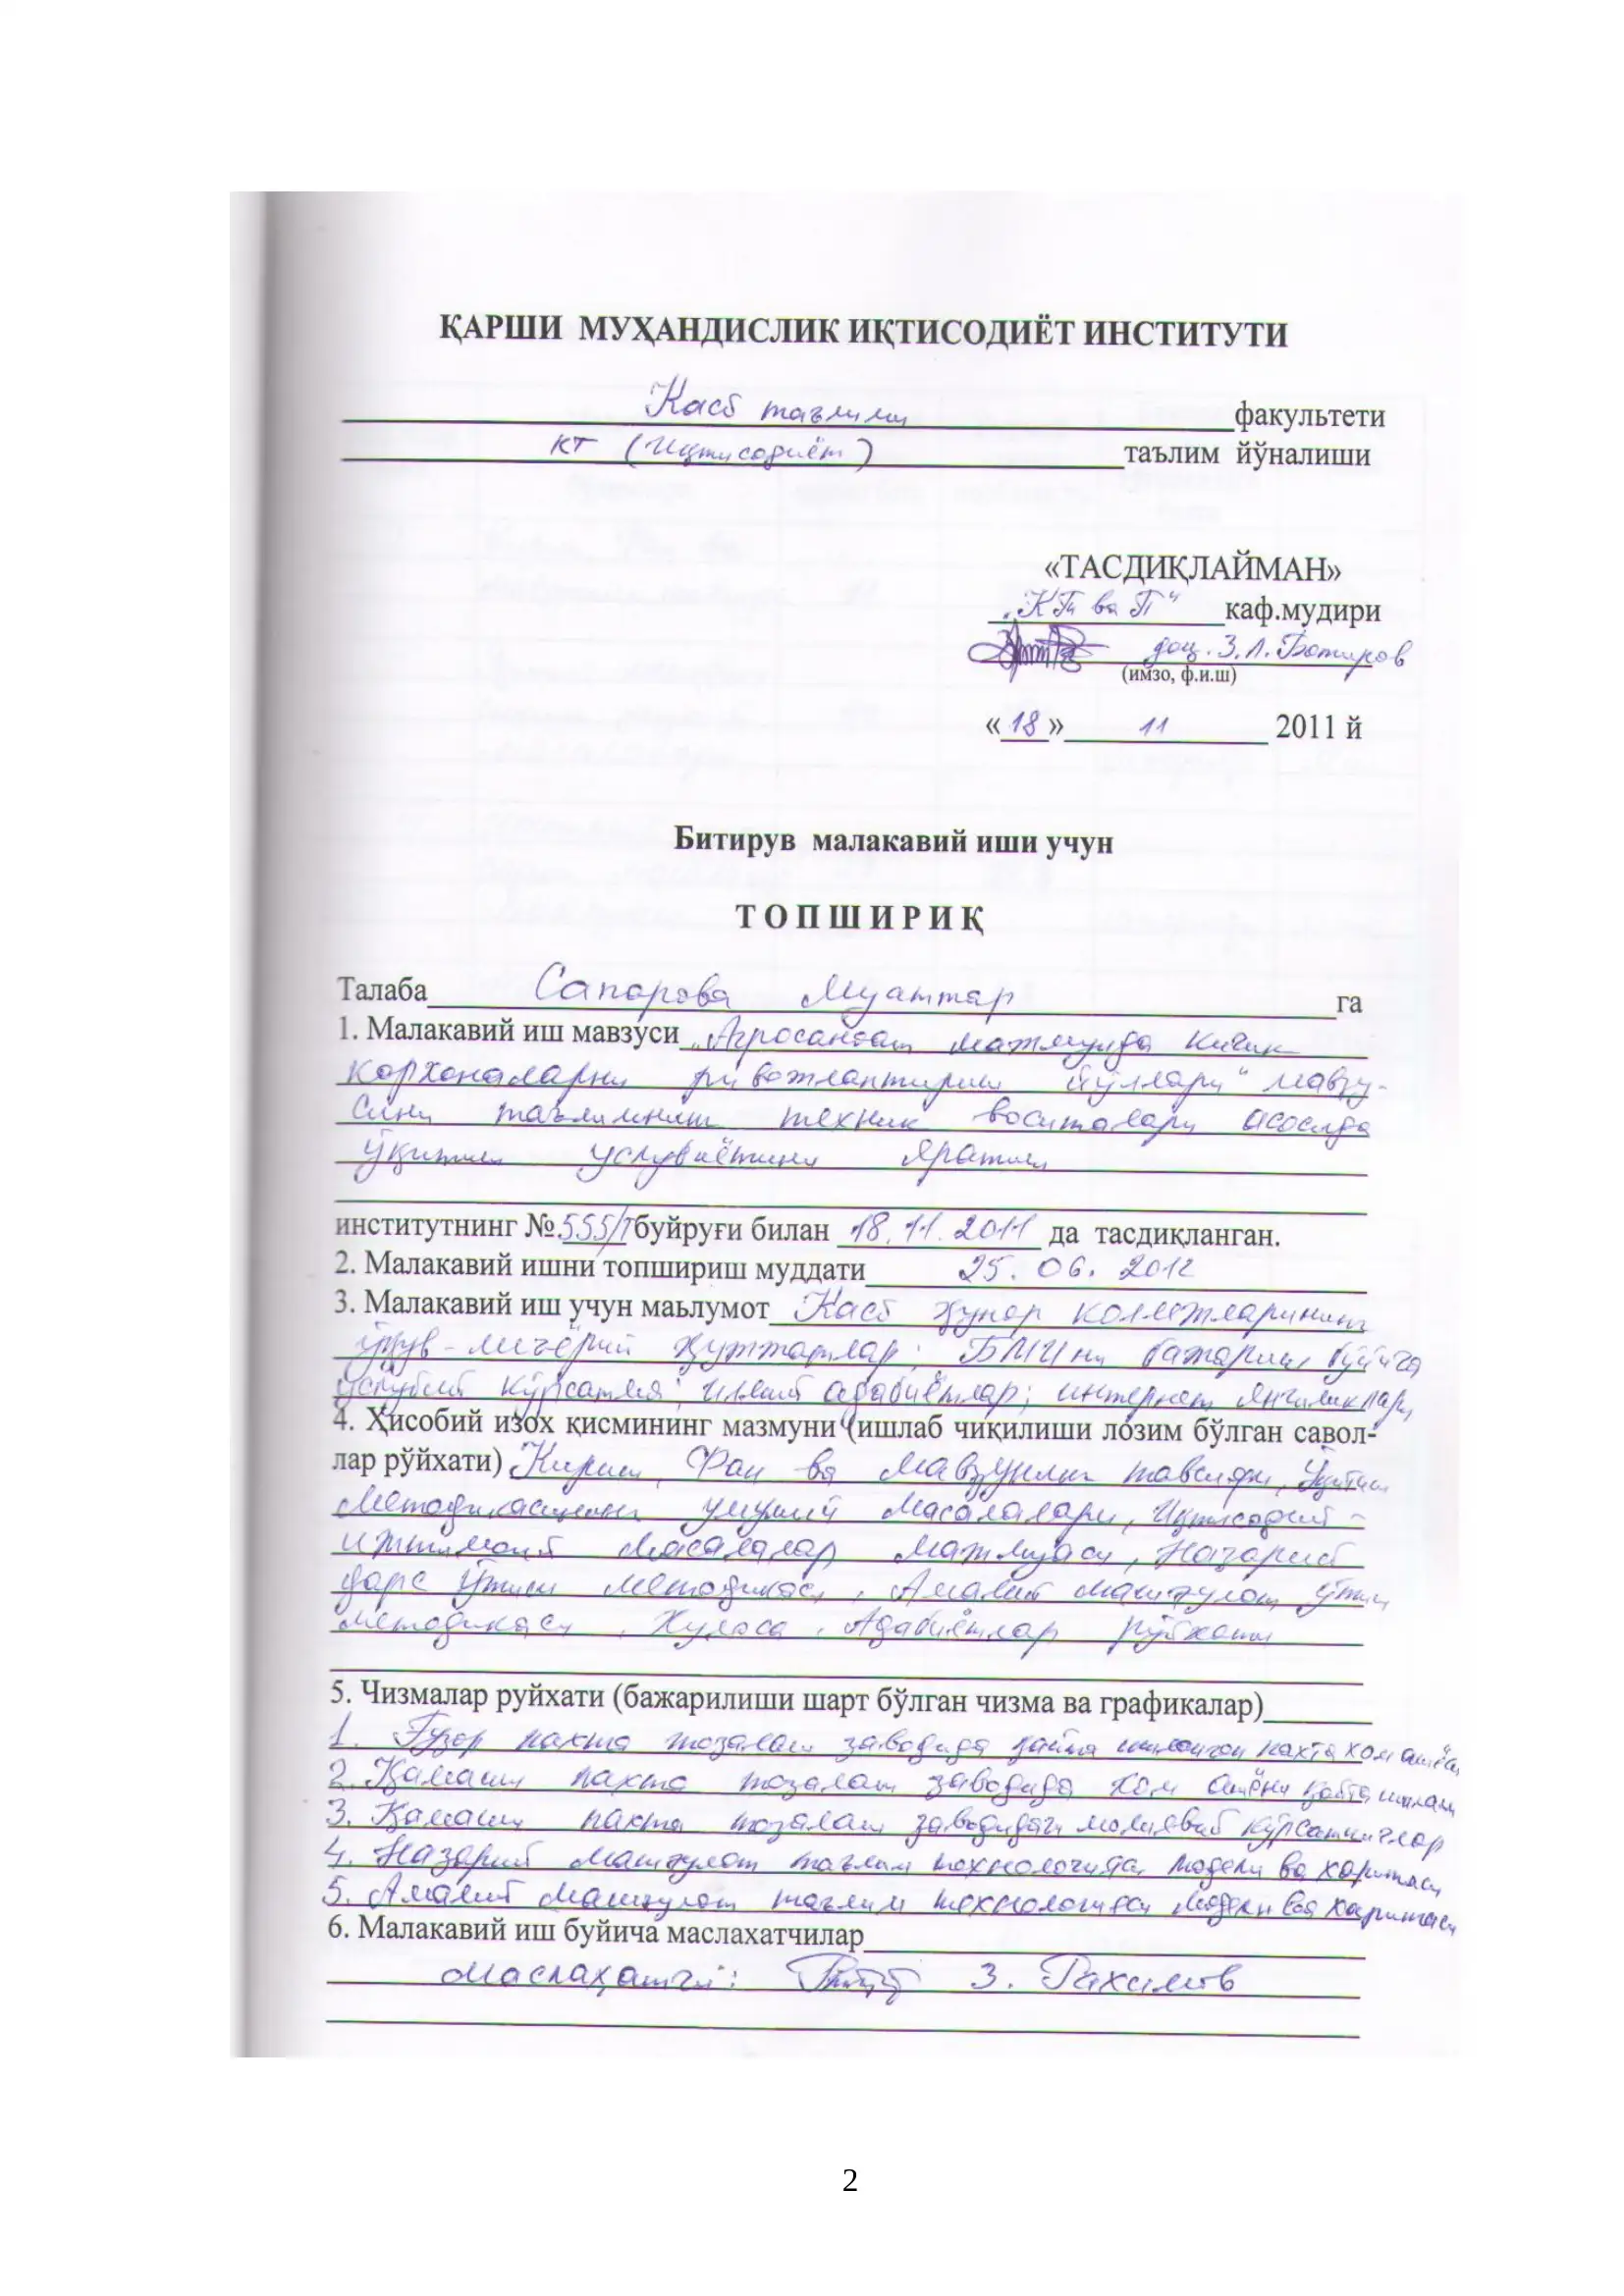 ҚАРШИ МУҲАНДИСЛИК ИҚТИСОДИЁТ ИНСТИТУТИ
Касб таълими факультети
КТ (Иқтисодиёт) таълим йўналиши
«ТАСДИҚЛАЙМАН»
"КТ ва П" каф.мудири
доц. З.Л. Ботиров
(имзо, ф.и.ш)
«18» 11 2011 й
Битирув малакавий иши учун
Т О П Ш И Р И Қ
Талаба Сапарова Муаттар га
1. Малакавий иш мавзуси "Агросаноат мажмуида кичик
корхоналарни ривожлантириш йўллари" мавзу-
сини таълимнинг техник воситалари асосида
ўқитиш услубиётини яратиш
институтнинг № 555/Т буйруғи билан 18.11.2011 да тасдиқланган.
2. Малакавий ишни топшириш муддати 25.06.2012
3. Малакавий иш учун маьлумот Касб ҳунар коллежларининг
ўқув-меъёрий ҳужжатлар; БМИни бажариш бўйича
услубий кўрсатма; илмий адабиётлар; интернет янгиликлари
4. Ҳисобий изох қисмининг мазмуни (ишлаб чиқилиши лозим бўлган савол-
лар рўйхати) Кириш, Фан ва мавзунинг тавсифи, Ўқитиш
методикасининг умумий масалалари, Иқтисодий-
ижтимоий масалалар мажмуаси, Назарий
дарс ўтиш методикаси, Амалий машғулот ўтиш
методикаси, Хулоса, Адабиётлар рўйхати
5. Чизмалар руйхати (бажарилиши шарт бўлган чизма ва графикалар)
1. Ғузор пахта тозалаш заводида қайта ишланган пахта хом ашёси
2. Қамаши пахта тозалаш заводида хом ашёни қайта ишлаш
3. Қамаши пахта тозалаш заводидаги молиявий кўрсаткичлар
4. Назарий машғулот таълим технологияси модели ва харитаси
5. Амалий машғулот таълим технологияси модели ва харитаси
6. Малакавий иш буйича маслахатчилар
Маслаҳатчи: З. Рахимов
2